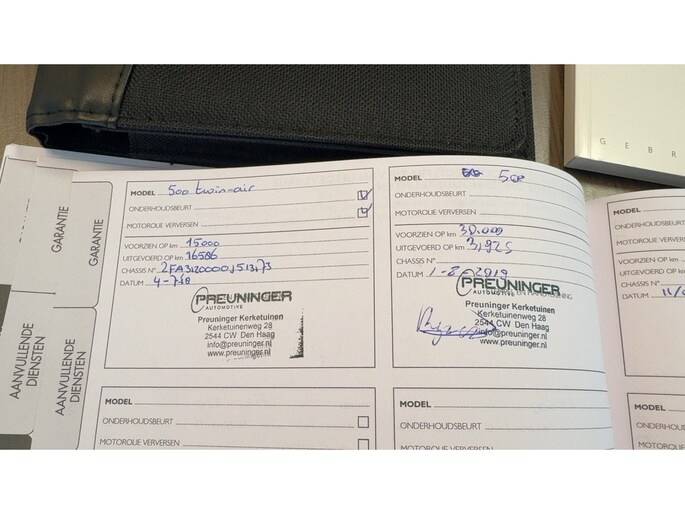 GEBR
GARANTIE
GARANTIE
AANVULLENDE
DIENSTEN
AANVULLENDE
DIENSTEN
MODEL 500 twin-air
ONDERHOUDSBEURT
MOTOROLIE VERVERSEN
VOORZIEN OP km 15000
UITGEVOERD OP km 16586
CHASSIS N°
DATUM 4-7-18
PREUNINGER
AUTOMOTIVE
Preuninger Kerketuinen
Kerketuinenweg 28
2544 CW Den Haag
info@preuninger.nl
www.preuninger.nl
MODEL 500
ONDERHOUDSBEURT
MOTOROLIE VERVERSEN
VOORZIEN OP km 30.000
UITGEVOERD OP km
CHASSIS N°
DATUM 1-8-2019
PREUNINGER
AUTOMOTIVE
Preuninger Kerketuinen
Kerketuinenweg 28
2544 CW Den Haag
info@preuninger.nl
www.preuninger.nl
MODEL
ONDERHOUDSBEURT
MOTOROLIE VERVERSEN
VOORZIEN OP km
UITGEVOERD OP km
CHASSIS N°
DATUM 11/
MODEL
ONDERHOUDSBEURT
MOTOROLIE VERVERSEN
MODEL
ONDERHOUDSBEURT
MOTOROLIE VERVERSEN
MODEL
ONDERHO
MOTOROLIE